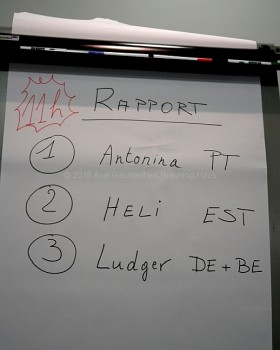 11h RAPPORT
1 Antonina PT
2 HELI EST
3 Ludger DE + BE